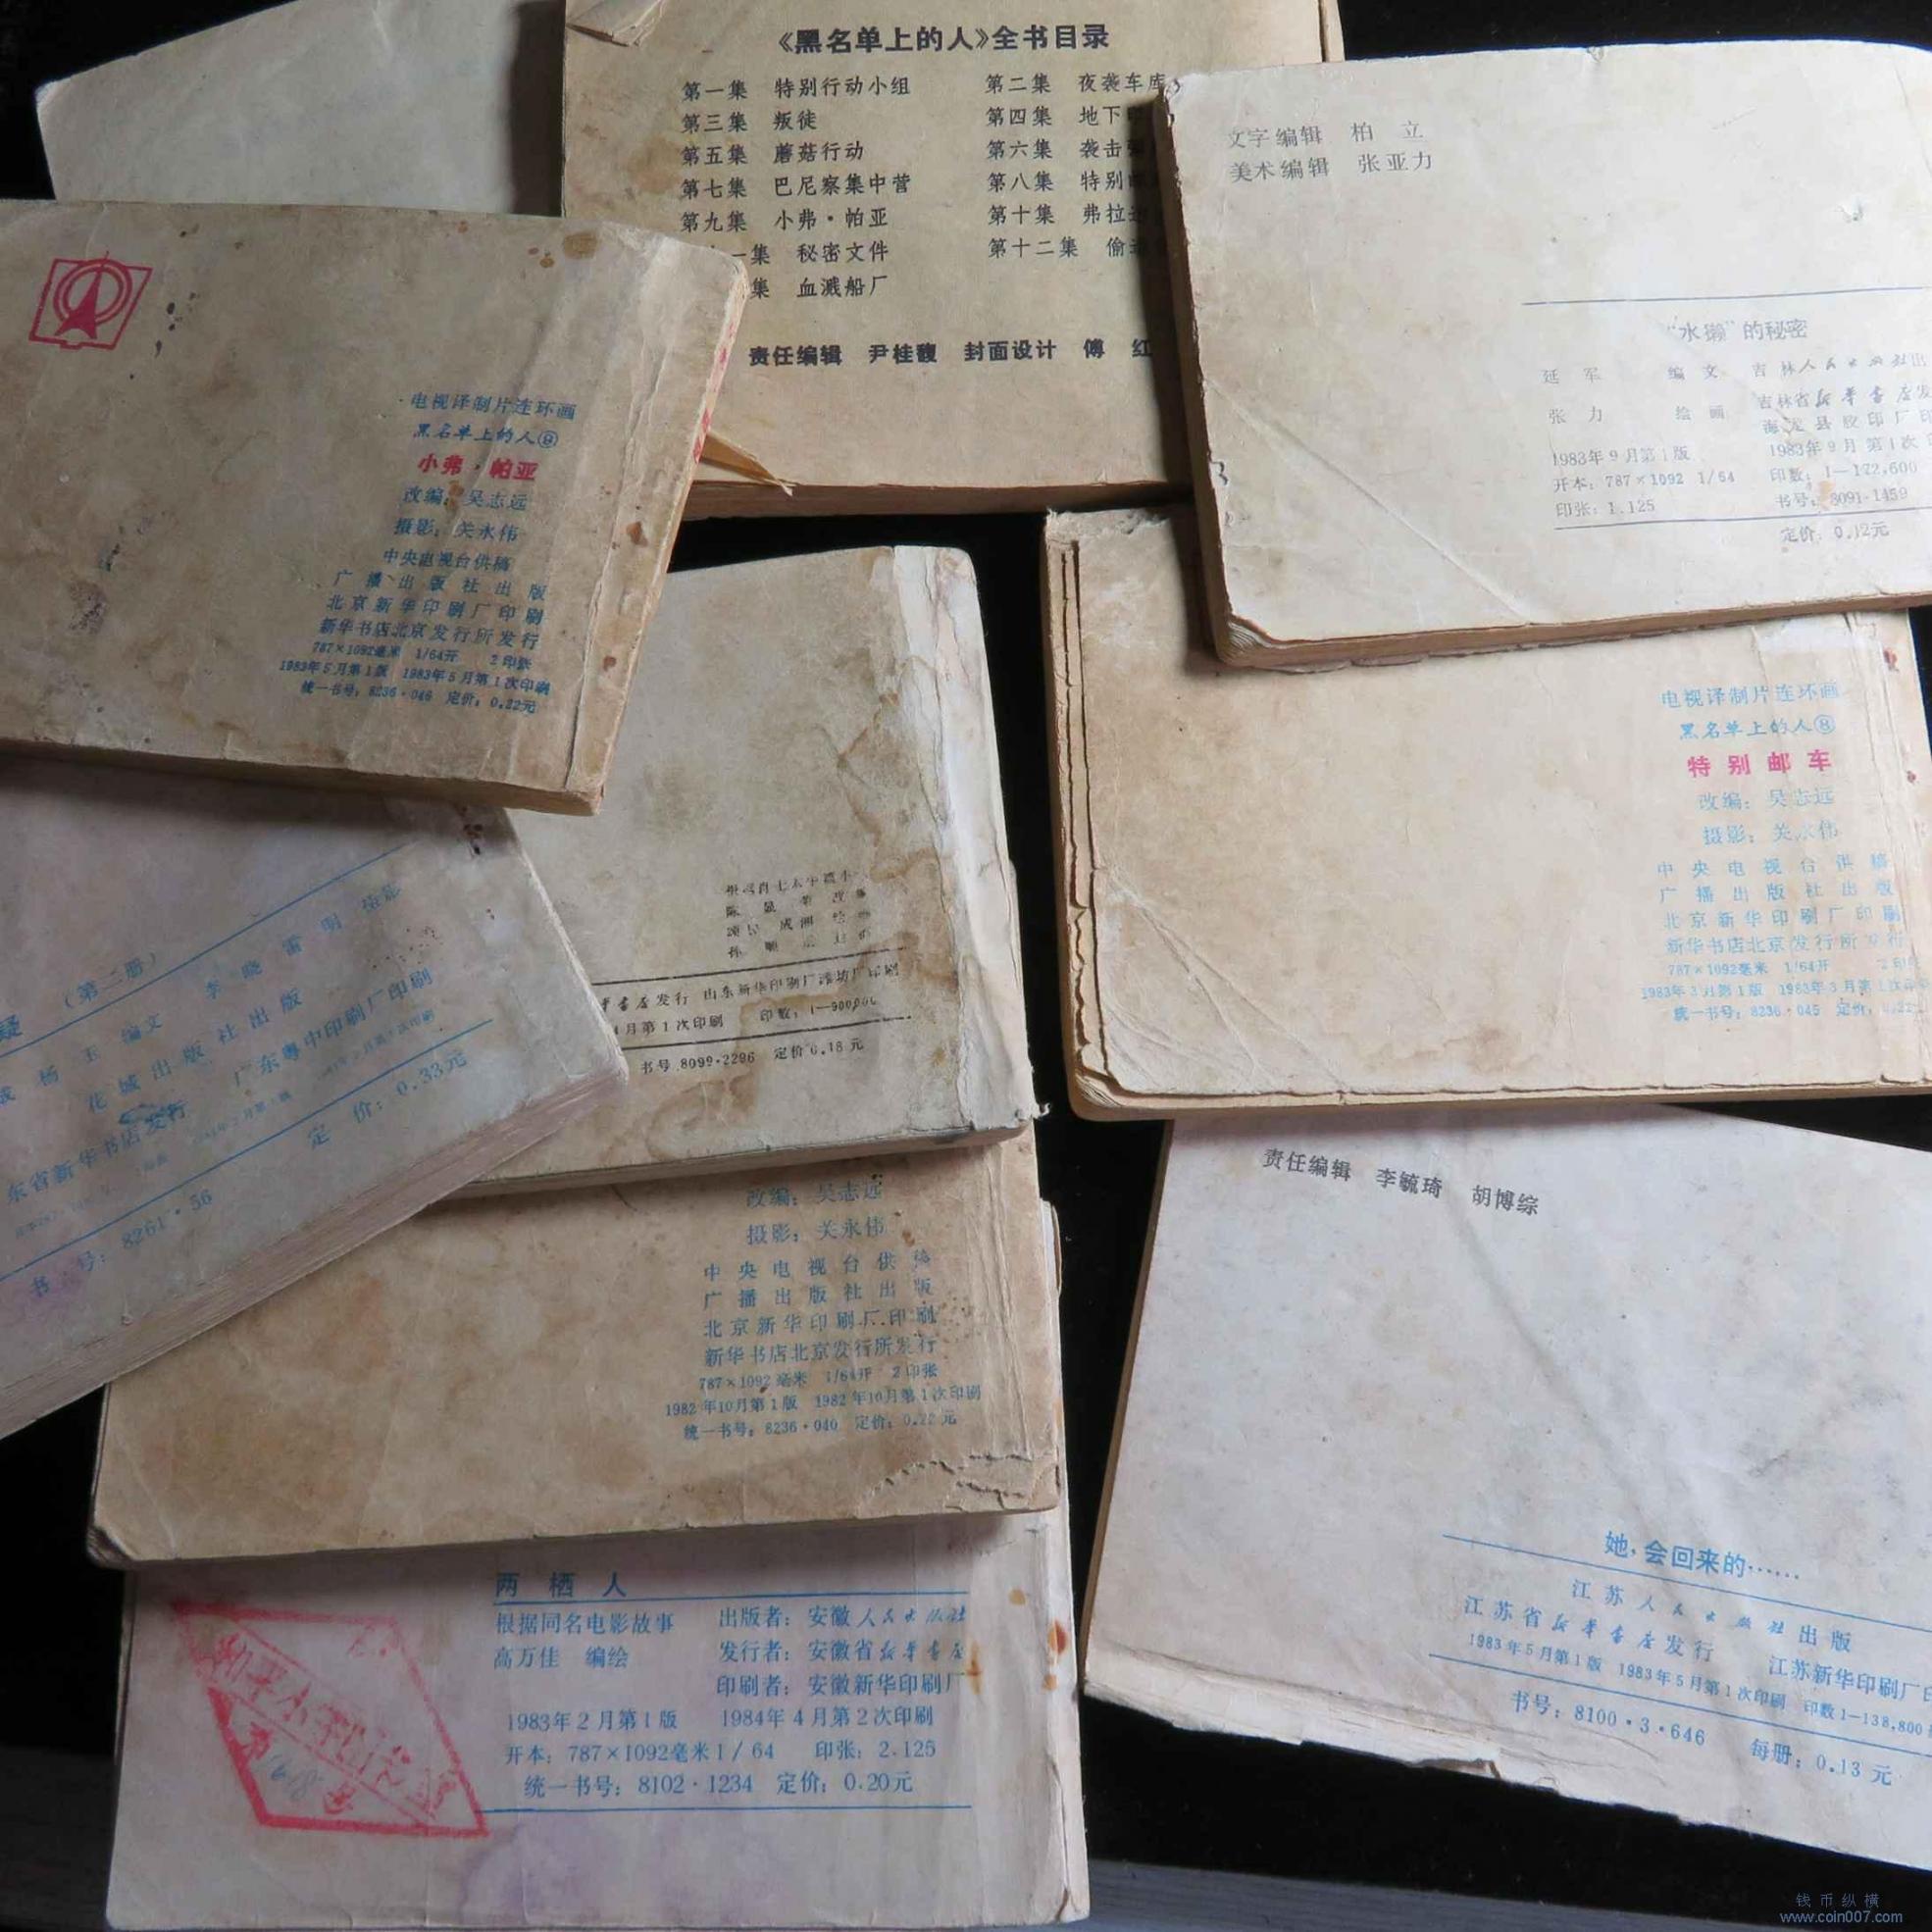 《黑名单上的人》全书目录
第一集 特别行动小组 第二集 夜袭车库
第三集 叛徒 第四集 地下
第五集 蘑菇行动 第六集 袭击
第七集 巴尼察集中营 第八集 特别
第九集 小弗·帕亚 第十集 弗拉
一集 秘密文件 第十二集 偷
集 血溅船厂
责任编辑 尹桂馥 封面设计 傅 红
文字编辑 柏 立
美术编辑 张亚力
“水獭”的秘密
延 军 编文 吉林人民出版社出
张 力 绘画 吉林省新华书店发
海龙县胶印厂印
1983年9月第1版 1983年9月第1次
开本：787×1092 1/64 印数：1—122,600
印张：1.125 书号：8091·1459
定价：0.12元
电视译制片连环画
黑名单上的人⑨
小弗·帕亚
改编：吴志远
摄影：关永伟
中央电视台供稿
广播出版社出版
北京新华印刷厂印刷
新华书店北京发行所发行
787×1092毫米 1/64开 2印张
1983年5月第1版 1983年5月第1次印刷
统一书号：8236·046 定价：0.22元
陈 显 改编
成湘
孙 顺
华书店发行 山东新华印刷厂潍坊厂印刷
月第1次印刷 印数：1—900,000
书号 8099·2296 定价 0.18元
电视译制片连环画
黑名单上的人⑧
特别邮车
改编：吴志远
摄影：关永伟
中央电视台供稿
广播出版社出版
北京新华印刷厂印刷
新华书店北京发行所发行
787×1092毫米 1/64开
1983年3月第1版 1983年3月第1次印
统一书号：8236·045 定价：0.22
疑 （第二册）
杨玉 编文 李晓雷 明
花城出版社出版
东省新华书店发行 广东粤中印刷厂印刷
书号：8261·56 定价：0.33元
改编：吴志远
摄影：关永伟
中央电视台供稿
广播出版社出版
北京新华印刷厂印刷
新华书店北京发行所发行
787×1092毫米 1/64开 2印张
1982年10月第1版 1982年10月第1次印刷
统一书号：8236·040 定价：0.22元
责任编辑 李毓琦 胡博综
她，会回来的……
江苏人民出版社出版
江苏省新华书店发行 江苏新华印刷厂印
1983年5月第1版 1983年5月第1次印刷 印数1—138,800
书号：8100·3·646 每册：0.13元
两栖人
根据同名电影故事 出版者：安徽人民出版社
高万佳 编绘 发行者：安徽省新华书店
印刷者：安徽新华印刷厂
1983年2月第1版 1984年4月第2次印刷
开本：787×1092毫米1/64 印张：2.125
统一书号：8102·1234 定价：0.20元
钱币纵横
www.coin007.com